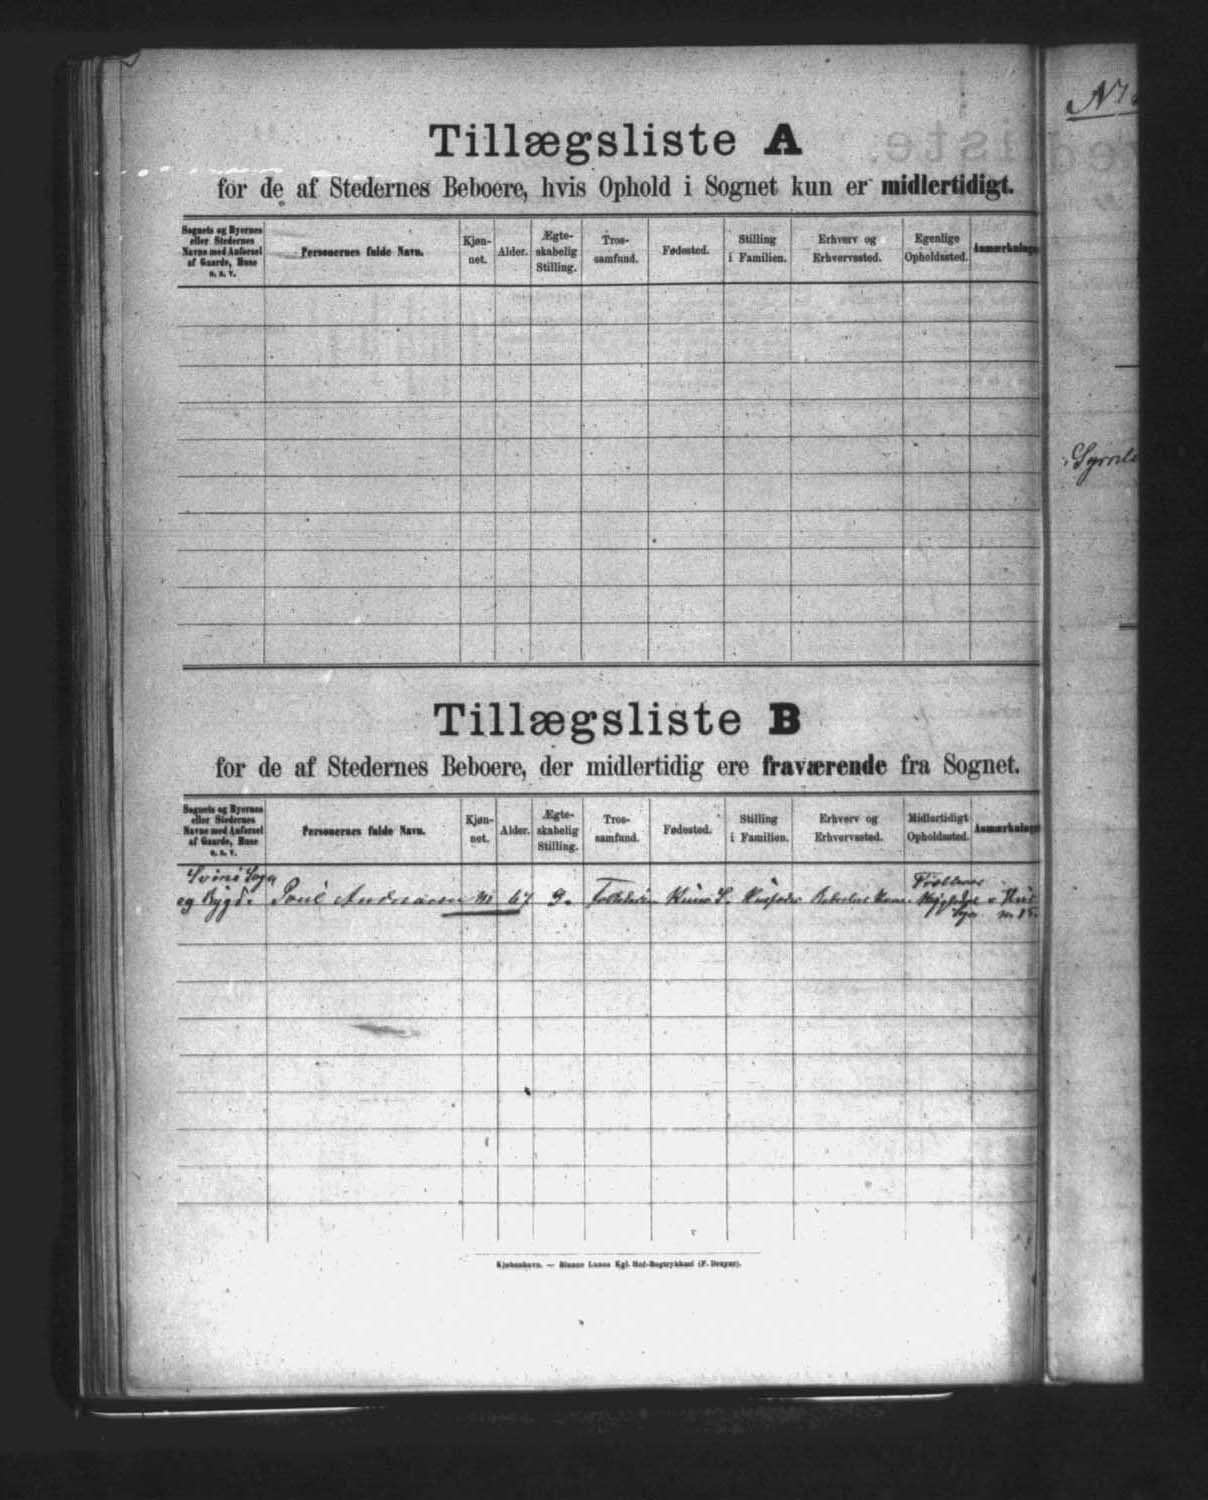 Tillægsliste A
for de af Stedernes Beboere, hvis Ophold i Sognet kun er midlertidigt.
Sognets og Byernes eller Stedernes Navne med Anførsel af Gaarde, Huse o. s. v.
Personernes fulde Navn.
Kjøn-
net.
Alder.
Ægte-
skabelig
Stilling.
Tros-
samfund.
Fødested.
Stilling
i Familien.
Erhverv og
Erhvervssted.
Egenlige
Opholdssted.
Anmærkninge
Tillægsliste B
for de af Stedernes Beboere, der midlertidig ere fraværende fra Sognet.
Sognets og Byernes
eller Stedernes
Navne med Anførsel
af Gaarde, Huse
o. s. v.
Personernes fulde Navn.
Kjøn-
net.
Alder.
Ægte-
skabelig
Stilling.
Tros-
samfund.
Fødested.
Stilling
i Familien.
Erhverv og
Erhvervssted.
Midlertidigt
Opholdssted.
Anmærkninge
Svinø Sogn
og Bygd. Poul Andreasen M 67 G.
Kjøbenhavn. — Bianco Lunos Kgl. Hof-Bogtrykkeri (F. Dreyer).